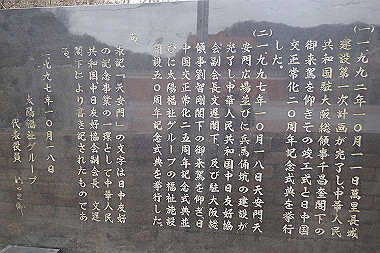 (一)一九九二年一〇月一一日萬里長城
建設第一次計画が完了し中華人民
共和国駐大阪総領事千昌奎閣下の
御来駕を仰ぎその竣工式と日中国
交正常化二〇周年記念式典を挙行
した。
(二)一九九七年一〇月一八日天安門天
安門広場並びに兵馬俑坑の建設が
完了し中華人民共和国中日友好協
会副会長文遅閣下、及び駐大阪総
領事劉智剛閣下の御来駕を仰ぎ日
中国交正常化二五周年記念式典並
びに太陽福祉グループの福祉施設
創設五〇周年記念式典を挙行した。
尚
表記「天安門」の文字は日中友好
の記念事業の一環として中華人民
共和国中日友好協会副会長 文遅
閣下により書き記されたものであ
る。
一九九七年一〇月一八日
太陽福祉グループ
代表役員